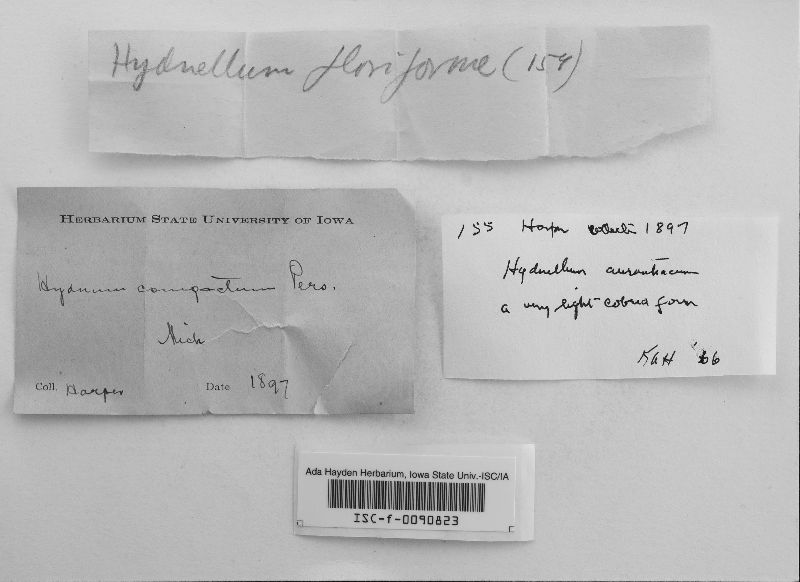 Hydnellum floriforme (154)
HERBARIUM STATE UNIVERSITY OF IOWA
Hydnum compactum Pers.
Mich
Coll. Harper Date 1897
155 Harper 1897
Hydnellum aurantiacum
a very light-colored form
KAH '66
Ada Hayden Herbarium, Iowa State Univ.-ISC/IA
ISC-f-0090823